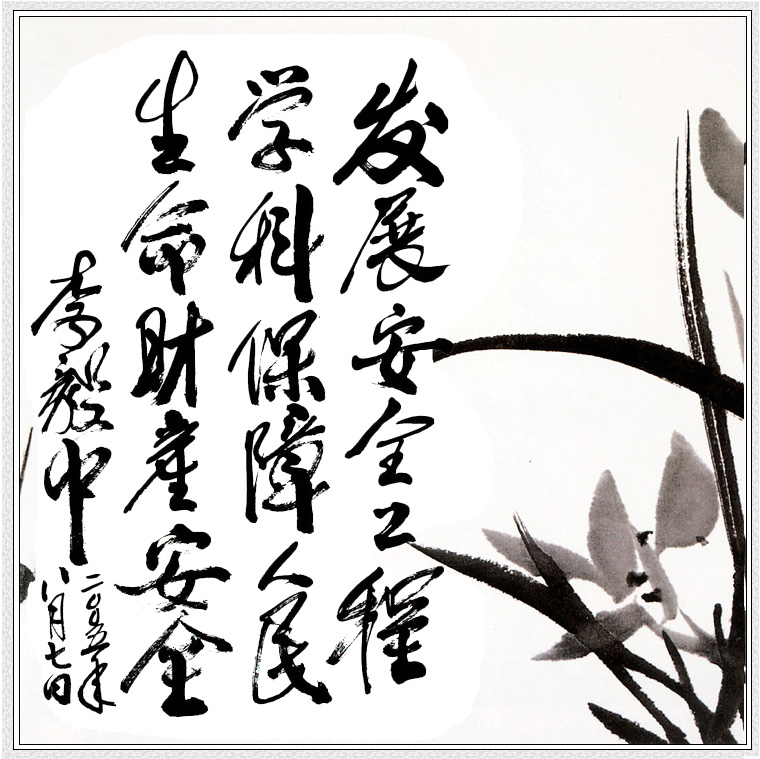 发展安全工程
学科保障人民
生命财产安全
李毅中
二00五年
八月七日